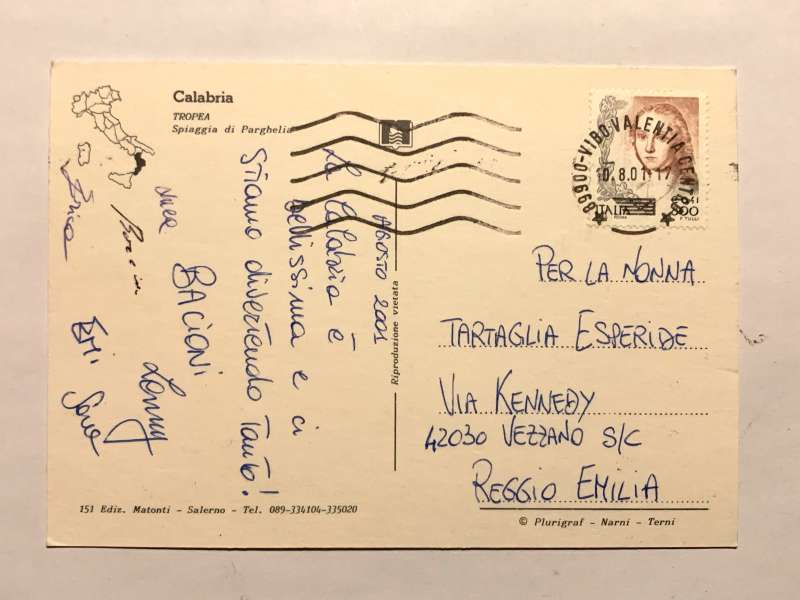 Calabria
TROPEA
Spiaggia di Parghelia
AGOSTO 2001
La Calabria è
bellissima e ci
stiamo divertendo tanto!
BACIONI
Luca
Erica
Emi
Sara
Riproduzione vietata
89900-VIBO VALENTIA CENTRO
10.8.01-17
ITALIA
800
ROMA
F. TULLI
PER LA NONNA
TARTAGLIA ESPERIDE
VIA KENNEDY
42030 VEZZANO S/C
REGGIO EMILIA
151 Ediz. Matonti - Salerno - Tel. 089-334104-335020
© Plurigraf - Narni - Terni